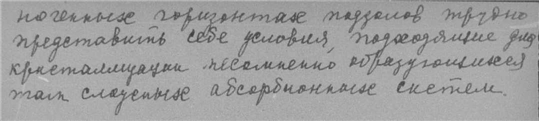 ногенных горизонтах подзолов трудно
представить себе условия, подходящие для
кристаллизации несомненно образующихся
там сложных абсорбционных систем.